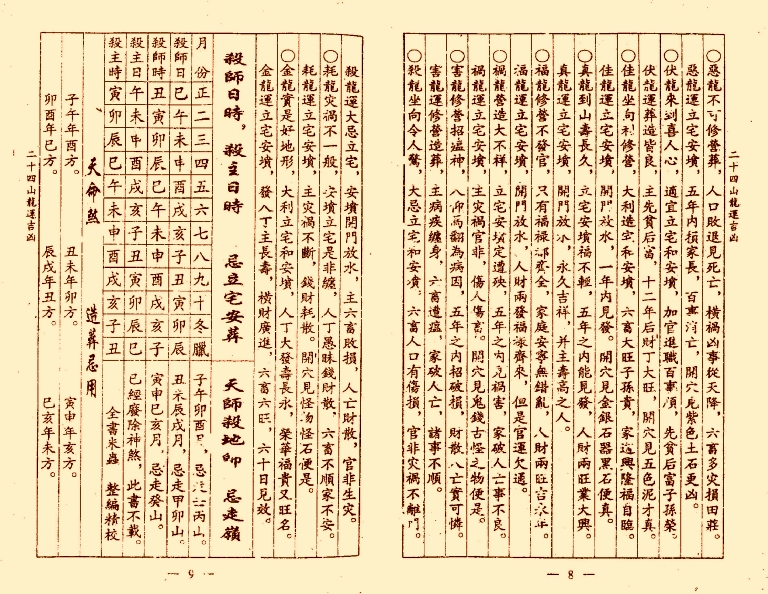 二十四山龍運吉凶
○惡龍不可修營葬，人口敗退見死亡，橫禍凶事從天降，六畜多災損田莊。
惡龍運立宅安墳，五年內損家長，百事消亡，開穴見紫色土石更凶。
○伏龍來到喜人心，適宜立宅和安墳，加官進職百事順，先貧后富子孫榮。
伏龍運葬造皆良，主先貧后富，十二年后財丁大旺，開穴見五色泥才真。
○佳龍坐向利修營，大利造宅和安墳，六畜大旺子孫貴，家運興隆福自臨。
佳龍運立宅安墳，開門放水，一年內見發。開穴見金銀石器黑石便真。
○真龍到山壽長久，立宅安墳福不輕，五年之內能見發，人財兩旺業大興。
真龍運立宅安墳，開門放水，永久吉祥，并主壽高之人。
○福龍修營不發官，只有福祿部齊全，家庭安寧無錯亂，人財兩旺吉永年。
福龍運立宅安墳，開門放水，人財兩發福祿齊來，但是官運欠通。
○禍龍營造大不祥，立宅安墳定遭殃，五年之內見禍害，家破人亡事不良。
禍龍運立宅安墳，主災禍官非，傷人傷畜。開穴見鬼錢古怪之物便是。
○害龍修營招瘟神，八卯兩翻為病因，五年之內招破損，財散人亡實可憐。
害龍運修營造葬，主病疾纏身，六畜遭瘟，家破人亡，諸事不順。
○殺龍坐向令人驚，大忌立宅和安墳，六畜人口有傷損，官非災禍不離門。
— 8 —
殺龍運大忌立宅，安墳開門放水，主六畜敗損，人亡財散，官非生災。
○耗龍災禍不一般，安墳立宅是非纏，人丁愚昧錢財散，六畜不順家不安。
耗龍運立宅安墳，主災禍不斷，錢財耗散。開穴見怪汤怪石便是。
○金龍實是好地形，大利立宅和安墳，人丁大發壽長永，榮華福貴又旺名。
金龍運立宅安墳，發人丁主長壽，橫財廣進，六畜六旺，六十日見效。
殺師日時，殺主日時　忌立宅安葬
月份正二三四五六七八九十冬臘
殺師日巳午未申酉戌亥子丑寅卯辰
殺師時丑寅卯辰巳午未申酉戌亥子
殺主日午未申酉戌亥子丑寅卯辰巳
殺主時寅卯辰巳午未申酉戌亥子丑
天師殺地師　忌走嶺
子午卯酉月，忌走壬丙山。
丑未辰戌月，忌走甲卯山。
寅申巳亥月，忌走癸山。
已經廢除神煞，此書不載。
全書來蟲　整編精校
天命煞　造葬忌用
子午年酉方。　丑未年卯方。　寅申年亥方。
卯酉年巳方。　辰戌年丑方。　巳亥年未方。
二十四山龍運吉凶
— 9 —